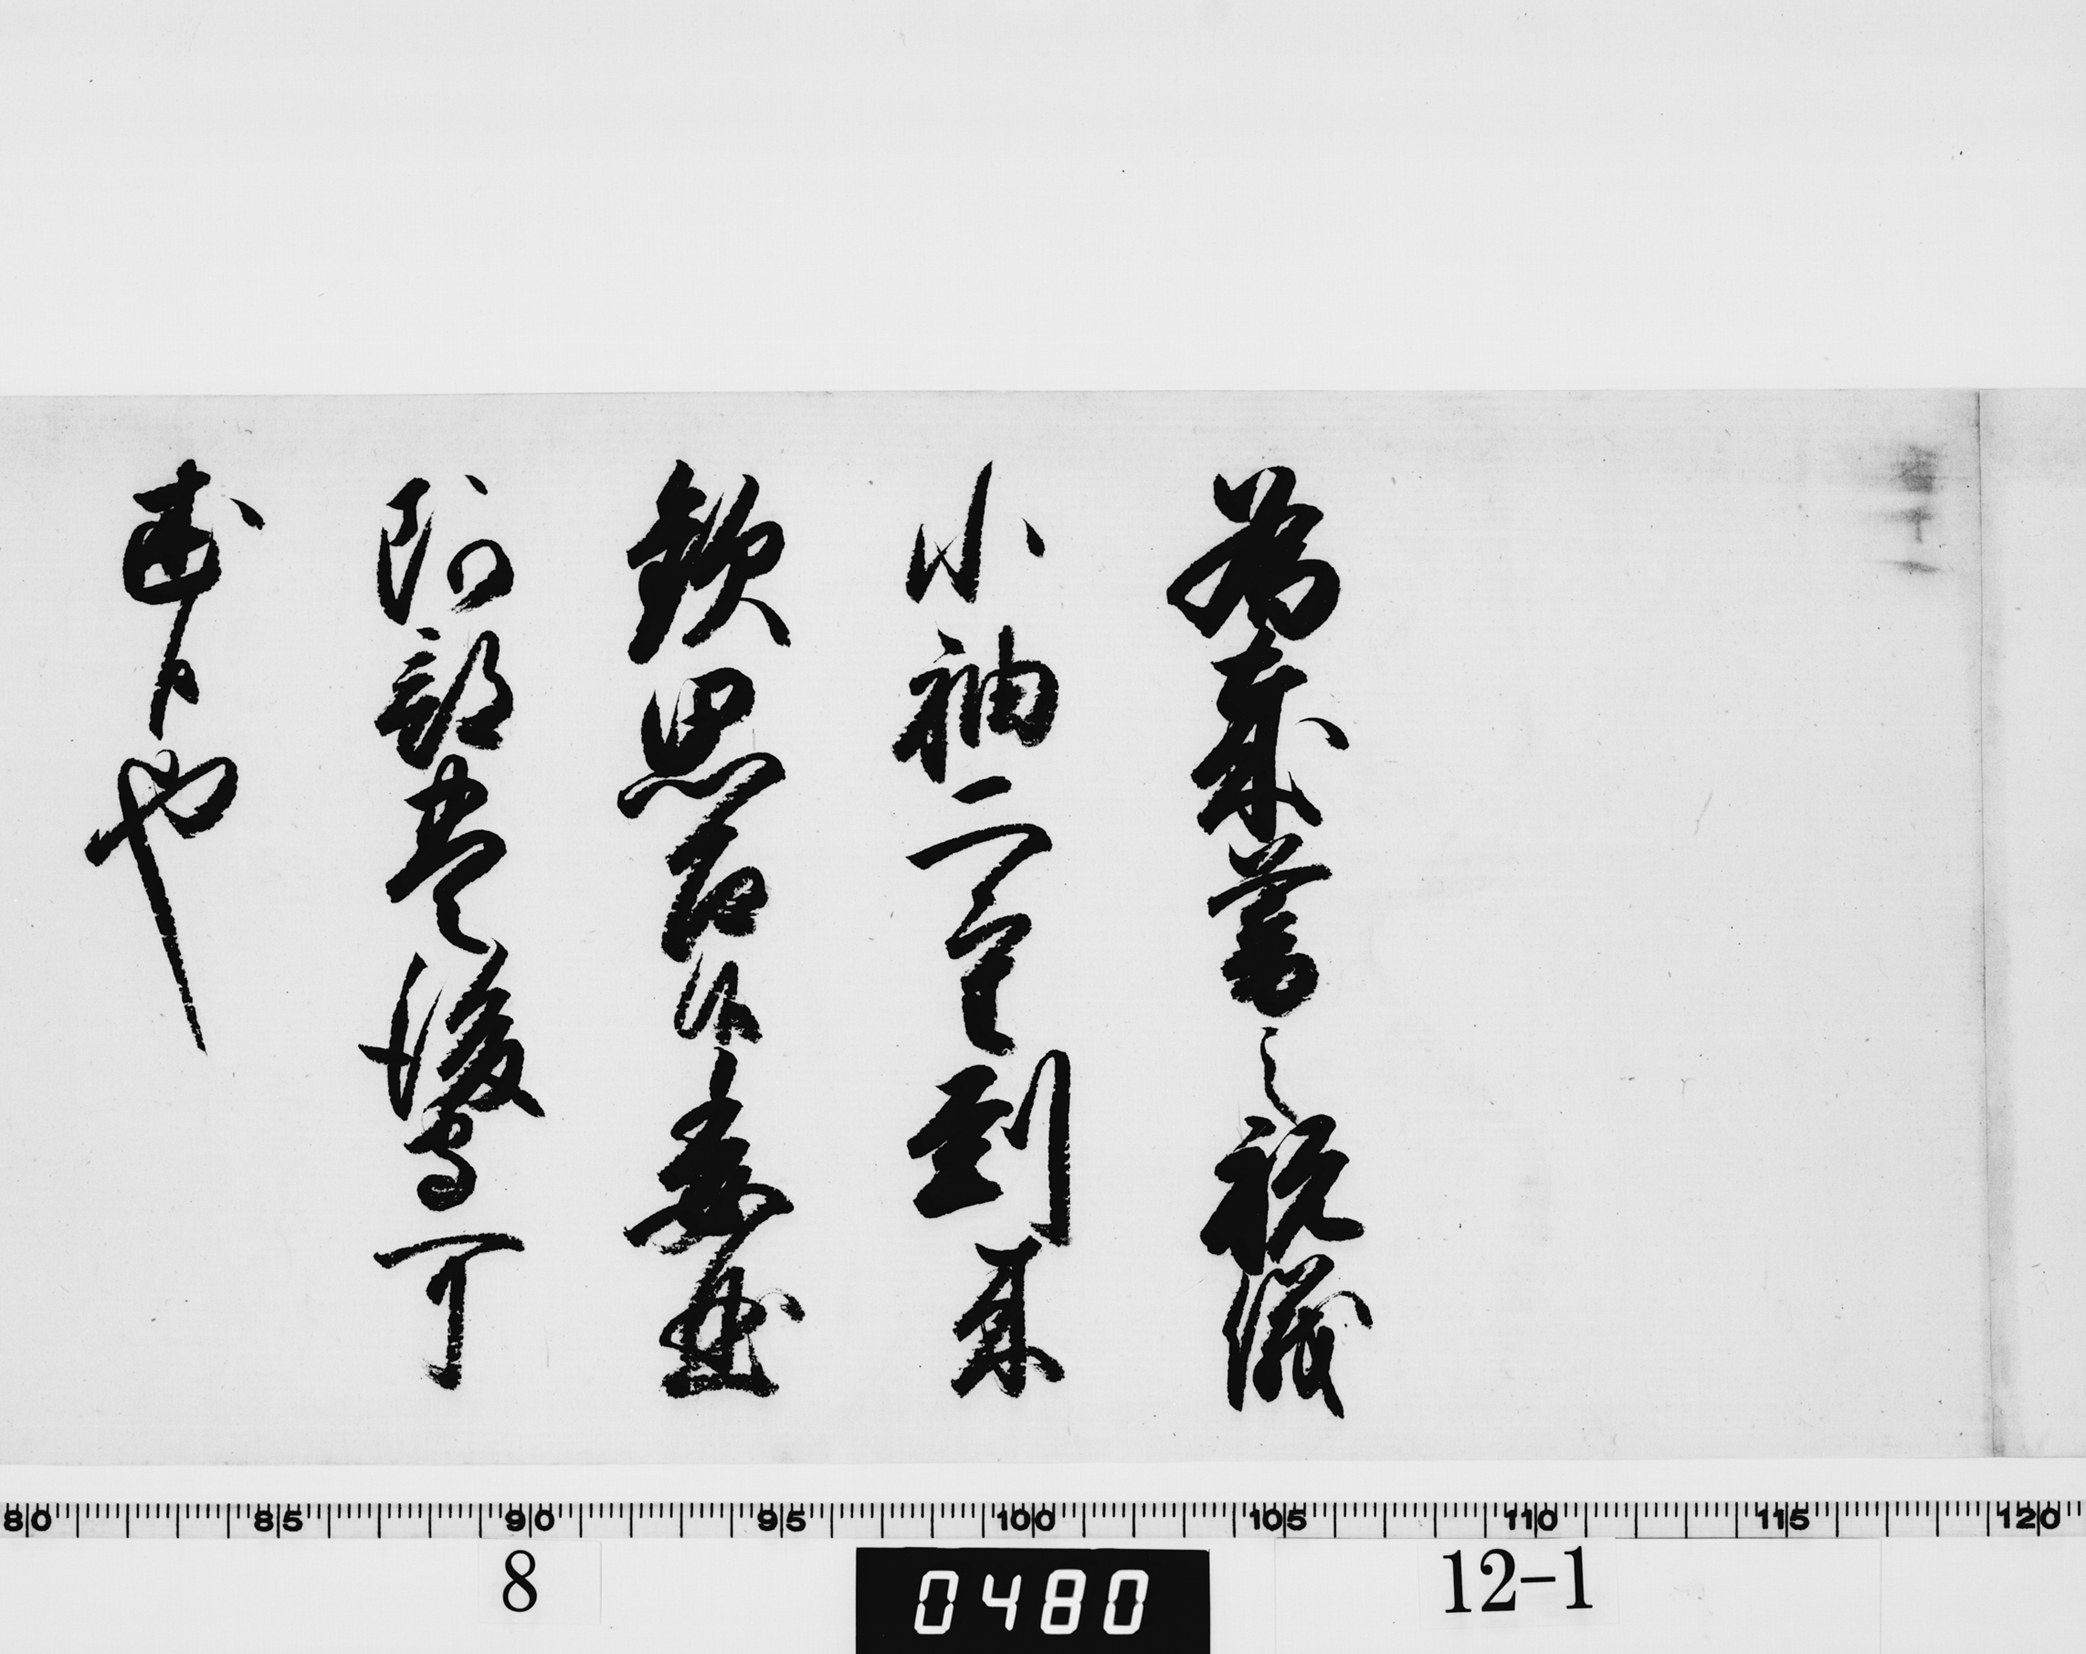 為歳暮之祝儀
小袖二重到来
歓思召候委曲
阿部豊後守可
述候也
80 85 90 95 100 105 110 115 120
8 0480 12-1